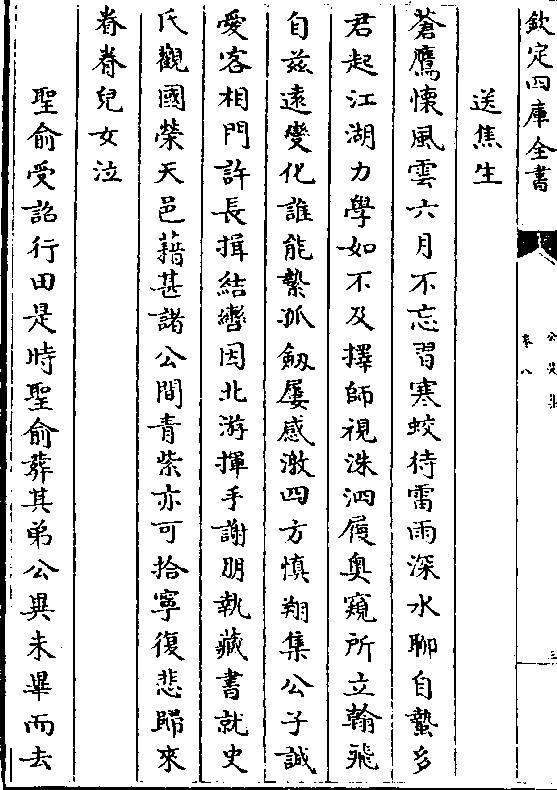 欽定四庫全書
公是集
卷八
三
送焦生
蒼鷹懷風雲六月不忘習寒蛟待雷雨深水聊自蟄多
君起江湖力學如不及擇師視洙泗履奥窺所立翰飛
自兹逺變化誰能縶孤劔屢感激四方慎翔集公子誠
愛客相門許長揖結轡因北游揮手謝朋執藏書就史
氏觀國榮天邑藉甚諸公間青紫亦可拾寧復悲歸來
眷眷兒女泣
聖俞受詔行田是時聖俞葬其弟公異未畢而去